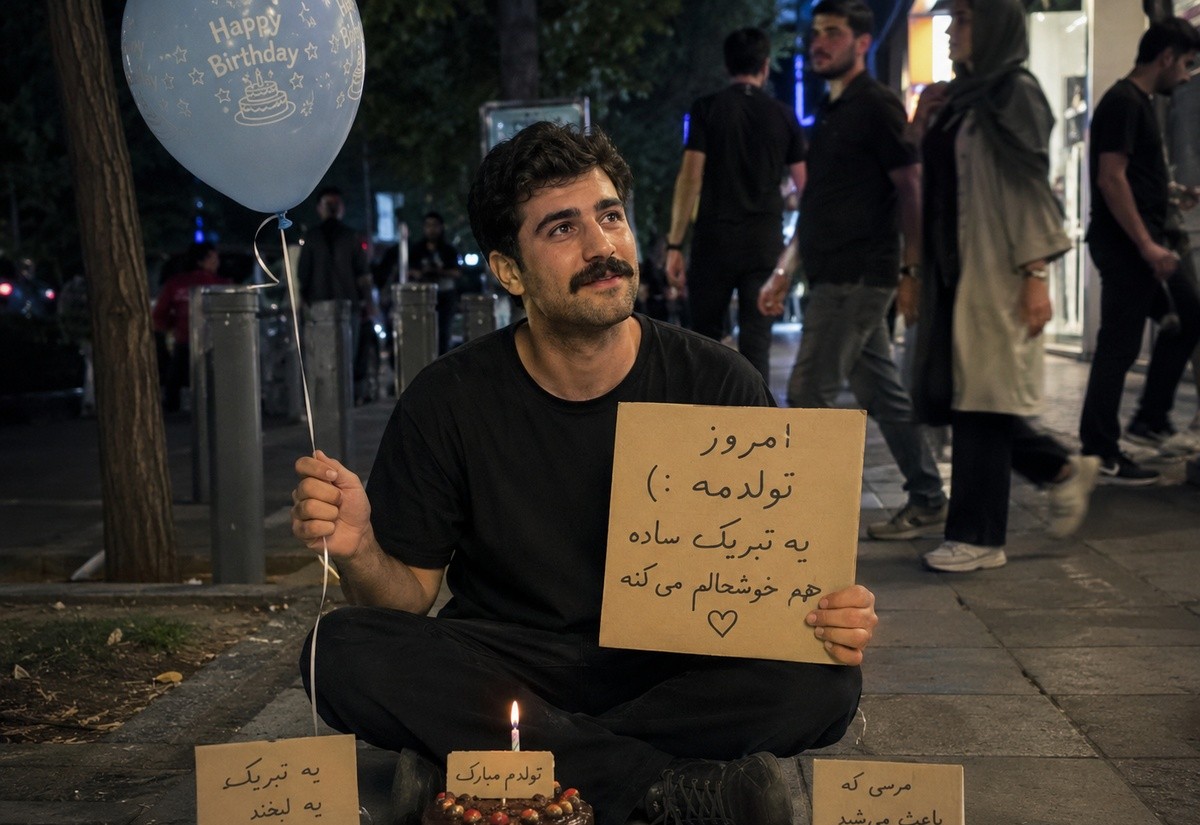 Happy
Birthday
امروز
تولدمه :)
یه تبریک ساده
هم خوشحالم می‌کنه
♡
یه تبریک
یه لبخند
تولدم مبارک
مرسی که
باعث می‌شید